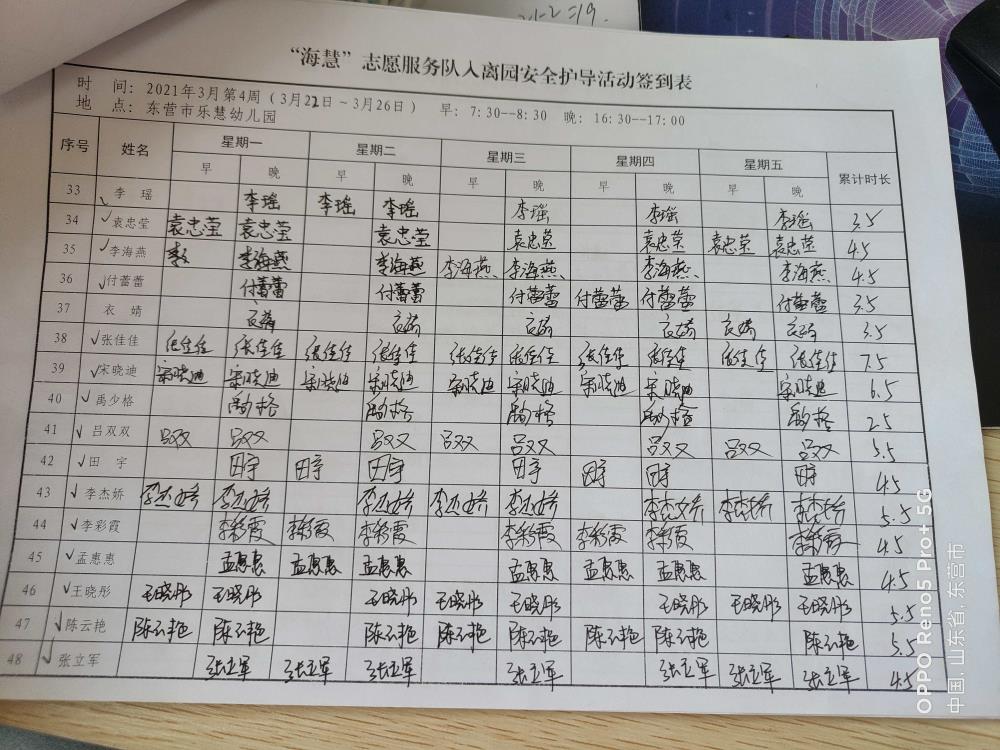 21-2=19.
“海慧”志愿服务队入离园安全护导活动签到表
时 间：2021年3月第4周（3月22日～3月26日） 早：7:30--8:30 晚：16:30--17:00
地 点：东营市乐慧幼儿园
序号 姓名 星期一 星期二 星期三 星期四 星期五 累计时长
早 晚 早 晚 早 晚 早 晚 早 晚
33 李 瑶 李瑶 李瑶 李瑶 李瑶 李瑶 李瑶 3.5
34 袁忠莹 袁忠莹 袁忠莹 袁忠莹 袁忠莹 袁忠莹 袁忠莹 袁忠莹 4.5
35 李海燕 李海燕 李海燕 李海燕 李海燕 李海燕 李海燕 4.5
36 付蕾蕾 付蕾蕾 付蕾蕾 付蕾蕾 付蕾蕾 付蕾蕾 付蕾蕾 3.5
37 衣 婧 衣婧 衣婧 衣婧 衣婧 衣婧 衣婧 3.5
38 张佳佳 张佳佳 张佳佳 张佳佳 张佳佳 张佳佳 张佳佳 张佳佳 张佳佳 张佳佳 张佳佳 7.5
39 宋晓迪 宋晓迪 宋晓迪 宋晓迪 宋晓迪 宋晓迪 宋晓迪 宋晓迪 宋晓迪 宋晓迪 6.5
40 禹少格 禹少格 禹少格 禹少格 禹少格 禹少格 2.5
41 吕双双 吕双双 吕双双 吕双双 吕双双 吕双双 吕双双 吕双双 吕双双 5.5
42 田 宇 田宇 田宇 田宇 田宇 田宇 田宇 田宇 4.5
43 李杰娇 李杰娇 李杰娇 李杰娇 李杰娇 李杰娇 李杰娇 李杰娇 李杰娇 5.5
44 李彩霞 李彩霞 李彩霞 李彩霞 李彩霞 李彩霞 李彩霞 李彩霞 4.5
45 孟惠惠 孟惠惠 孟惠惠 孟惠惠 孟惠惠 孟惠惠 孟惠惠 孟惠惠 4.5
46 王晓彤 王晓彤 王晓彤 王晓彤 王晓彤 王晓彤 王晓彤 王晓彤 王晓彤 5.5
47 陈云艳 陈云艳 陈云艳 陈云艳 陈云艳 陈云艳 陈云艳 陈云艳 陈云艳 5.5
48 张立军 张立军 张立军 张立军 张立军 张立军 张立军 张立军 4.5
OPPO Reno5 Pro+ 5G
中国.山东省.东营市